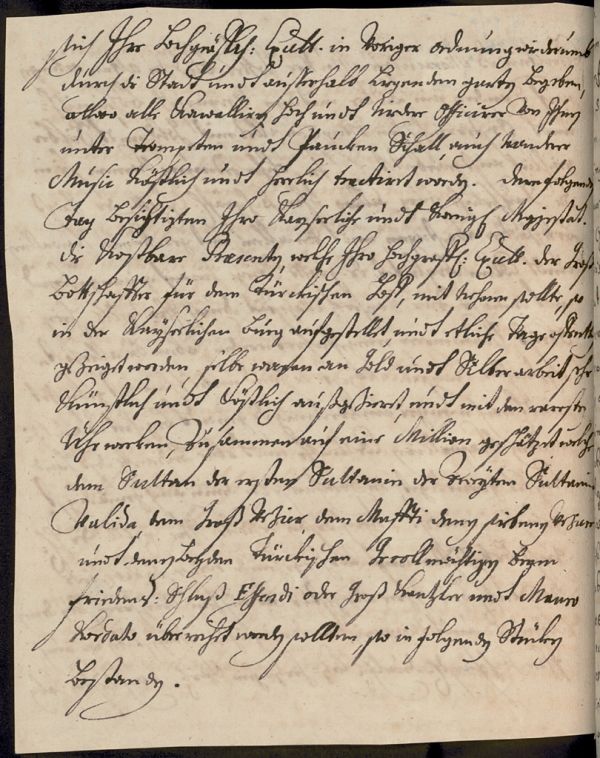 sich Ihro Hochgräffl: Excell. in Voriger ordnung widerumb
durch die Stadt undt ausserhalb liegendem garten begeben,
allwo alle Kawalliers hoch undt Nidere Officirer von Ihnen
unter Trompeten undt Paucken Schall, auch anderer
Music köstlich undt herrlich tractiret worden. Dem folgenden
Tag besichtigten Ihro Kayserliche undt Königl Mayestät.
die Kostbare Præsenten, welche Ihro Hochgräffl: Excell. der Groß
Bottschaffter für dem Türckischen Hoff, mit nehmen sollte, so
in der Kayserlichen Burg aufgestellt, undt etliche Tage
gezeiget worden, selbe waren an Gold undt Silber arbeit sehr
Künstlich undt Köstlich außgezieret, undt mit den raresten
Uhrwercken, zusammen auf eine Million geschätzet welche
dem Sultan der ersten Sultanin der Zweyten Sultanin
Valida, dem Groß Vezier, dem Muffti denen sieben Vezier
undt denen beyden Türckischen Gevollmächtigen beym
Friedens: Schluß Effendi oder Groß Kantzler undt Mauro
Kordato überreicht werden sollten, so in folgenden Stücken
Bestanden.